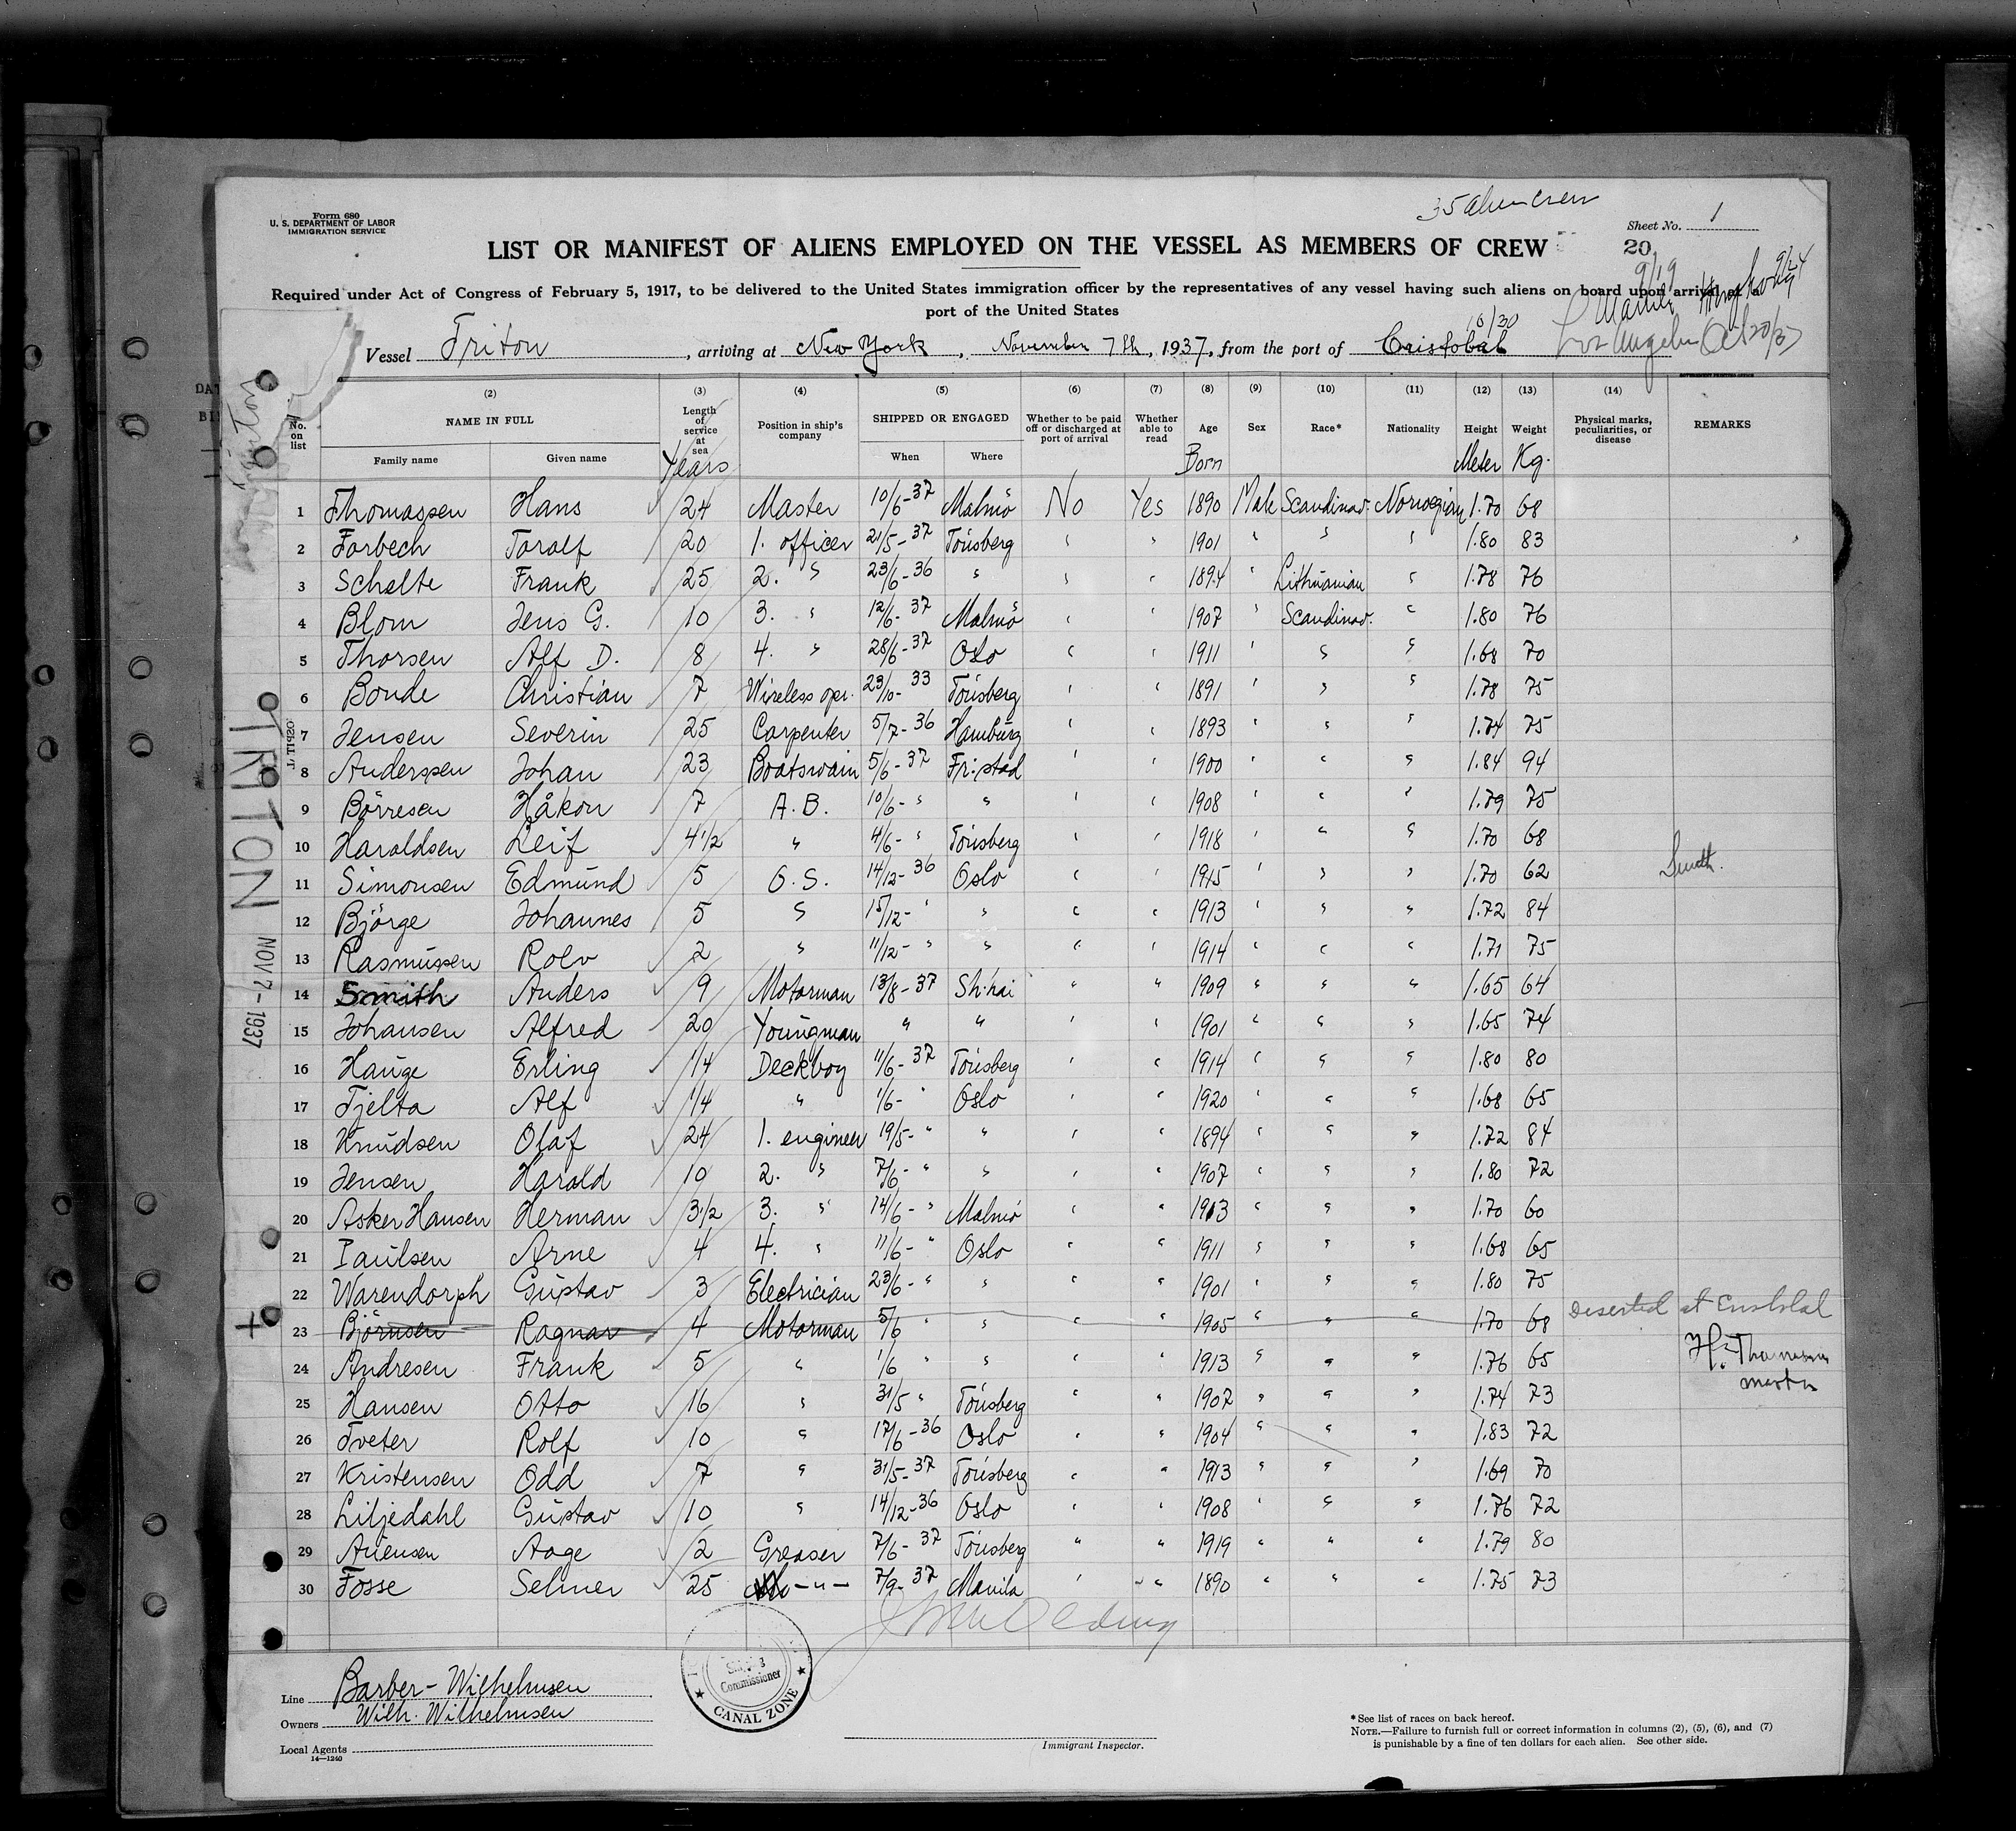 Form 680
U. S. DEPARTMENT OF LABOR
IMMIGRATION SERVICE
35 alien crew
Sheet No. 1
LIST OR MANIFEST OF ALIENS EMPLOYED ON THE VESSEL AS MEMBERS OF CREW
20
9/19 9/24
Required under Act of Congress of February 5, 1917, to be delivered to the United States immigration officer by the representatives of any vessel having such aliens on board upon arrival at a
port of the United States
Manila Hongkong
10/30
Vessel Triton, arriving at New York, November 7th, 1937, from the port of Cristobal
Los Angeles Oct 20/37
(2) (3) (4) (5) (6) (7) (8) (9) (10) (11) (12) (13) (14)
No. on list NAME IN FULL Length of service at sea Position in ship's company SHIPPED OR ENGAGED Whether to be paid off or discharged at port of arrival Whether able to read Age Sex Race* Nationality Height Weight Physical marks, peculiarities, or disease REMARKS
Family name Given name Years When Where Born Meter Kg.
1 Thomassen Hans 24 Master 10/6-37 Malmö No Yes 1890 Male Scandinav. Norwegian 1.70 68
2 Farbech Toralf 20 1. officer 21/5-37 Tönsberg " " 1901 " " " 1.80 83
3 Schelte Frank 25 2. " 23/6-36 " " " 1894 " Lithuanian " 1.78 76
4 Blom Jens G. 10 3. " 12/6-37 Malmö " " 1907 " Scandinav. " 1.80 76
5 Thorsen Alf D. 8 4. " 28/6-37 Oslo " " 1911 " " " 1.68 70
6 Bonde Christian 7 Wireless opr. 23/10-33 Tönsberg " " 1891 " " " 1.78 75
7 Jensen Severin 25 Carpenter 5/7-36 Hamburg " " 1893 " " " 1.74 75
8 Anderssen Johan 23 Boatswain 5/6-37 Fr:stad " " 1900 " " " 1.84 94
9 Börresen Håkon 7 A.B. 10/6- " " " " 1908 " " " 1.79 75
10 Haraldsen Leif 4 1/2 " 4/6- " Tönsberg " " 1918 " " " 1.70 68
11 Simonsen Edmund 5 O.S. 14/12-36 Oslo " " 1915 " " " 1.70 62
12 Björge Johannes 5 " 15/12- " " " " 1913 " " " 1.72 84
13 Rasmussen Rolv 2 " 11/12- " " " " 1914 " " " 1.71 75
14 Smith Anders 9 Motorman 13/8-37 Sh:hai " " 1909 " " " 1.65 64
15 Johansen Alfred 20 Youngman " " " " 1901 " " " 1.65 74
16 Hauge Erling 1/4 Deckboy 11/6-37 Tönsberg " " 1914 " " " 1.80 80
17 Tjelta Alf 1/4 " 1/6- " Oslo " " 1920 " " " 1.68 65
18 Knudsen Olaf 24 1. engineer 19/5- " " " " 1894 " " " 1.72 84
19 Jensen Harald 10 2. " 7/6- " " " " 1907 " " " 1.80 72
20 Asker Hansen Herman 3 1/2 3. " 14/6- " Malmö " " 1913 " " " 1.70 60
21 Paulsen Arne 4 4. " 11/6- " Oslo " " 1911 " " " 1.68 65
22 Warendorph Gustav 3 Electrician 23/6- " " " " 1901 " " " 1.80 75
23 Björnsen Ragnar 4 Motorman 5/6 " " " " 1905 " " " 1.70 68 Deserted at Cristobal
24 Andresen Frank 5 " 1/6 " " " " 1913 " " " 1.76 65 H. Thomassen
master
25 Hansen Otto 16 " 31/5 " Tönsberg " " 1907 " " " 1.74 73
26 Tveter Rolf 10 " 17/6-36 Oslo " " 1904 " " " 1.83 72
27 Kristensen Odd 7 " 31/5-37 Tönsberg " " 1913 " " " 1.69 70
28 Liljedahl Gustav 10 " 14/12-36 Oslo " " 1908 " " " 1.76 72
29 Auensen Aage 2 Greaser 7/6-37 Tönsberg " " 1919 " " " 1.79 80
30 Fosse Selmer 25 -"- 7/9-37 Manila " " 1890 " " " 1.75 73
TRITON NOV 7-1937
Shipping
Commissioner
CANAL ZONE
Line Barber-Wilhelmsen
Owners Wilh. Wilhelmsen
Local Agents
14—1240
Immigrant Inspector.
*See list of races on back hereof.
NOTE.—Failure to furnish full or correct information in columns (2), (5), (6), and (7)
is punishable by a fine of ten dollars for each alien. See other side.